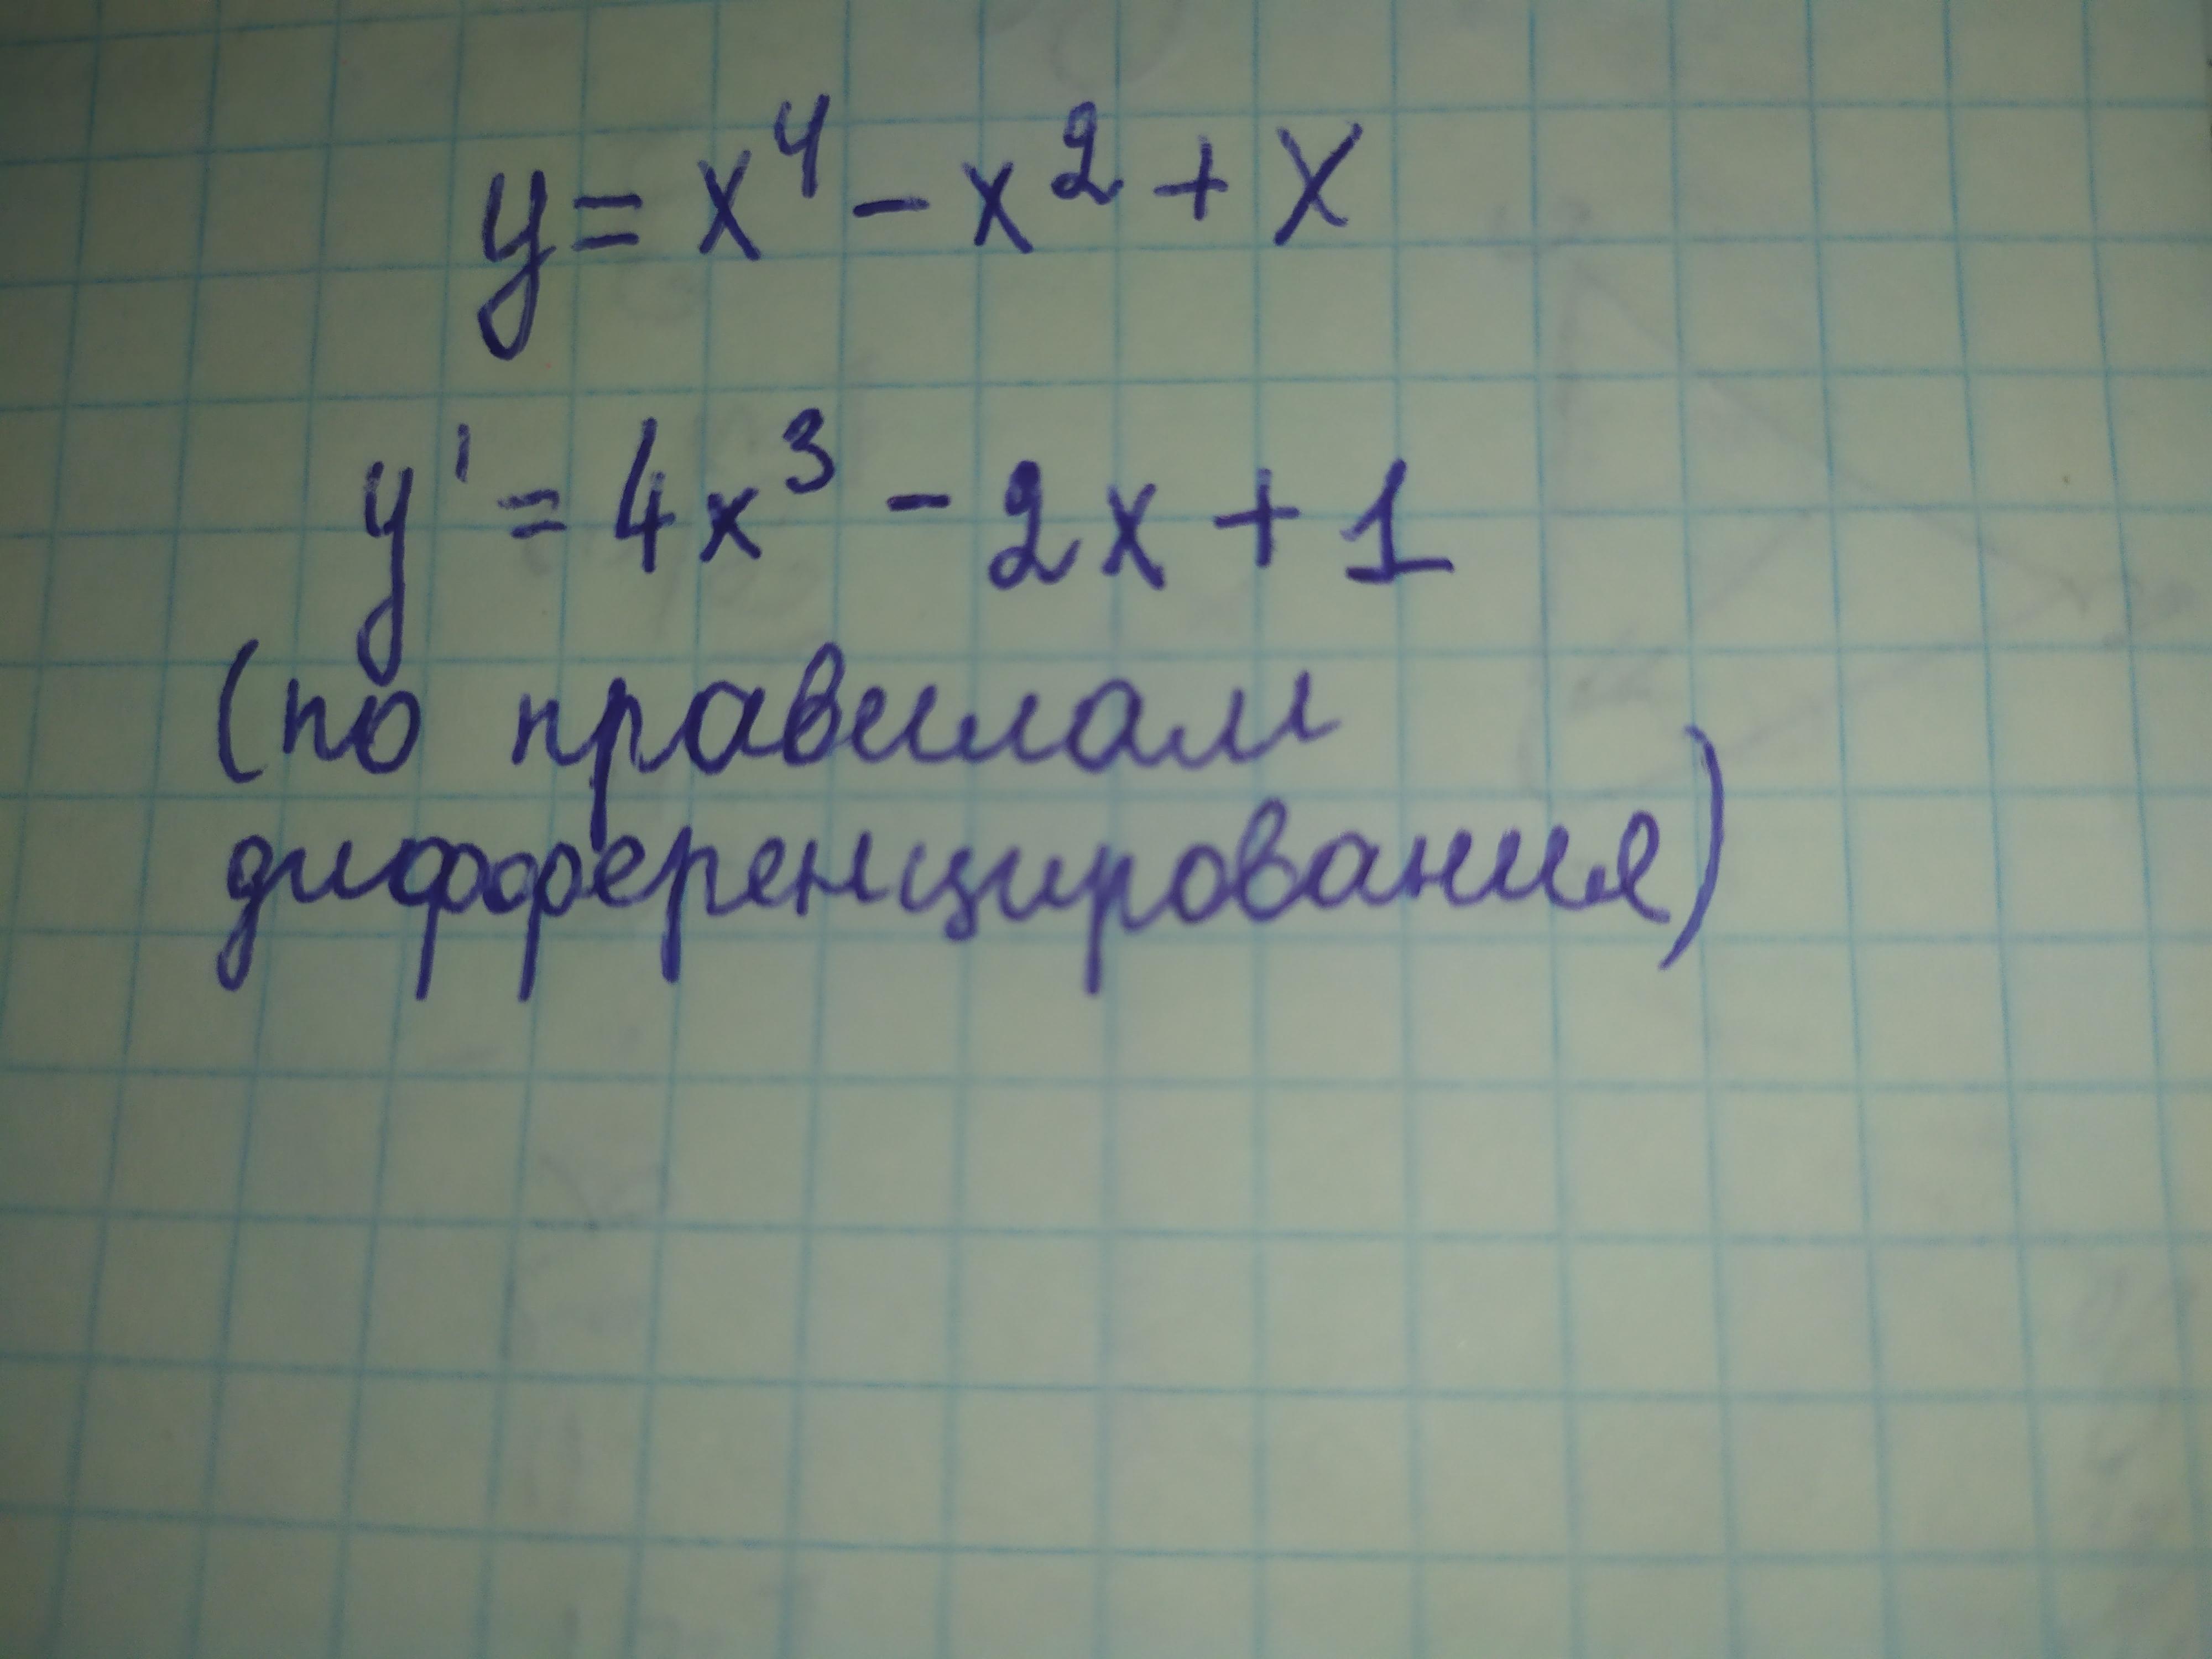 y = x⁴ - x² + x
y' = 4x³ - 2x + 1
(по правилам
дифференцирования)